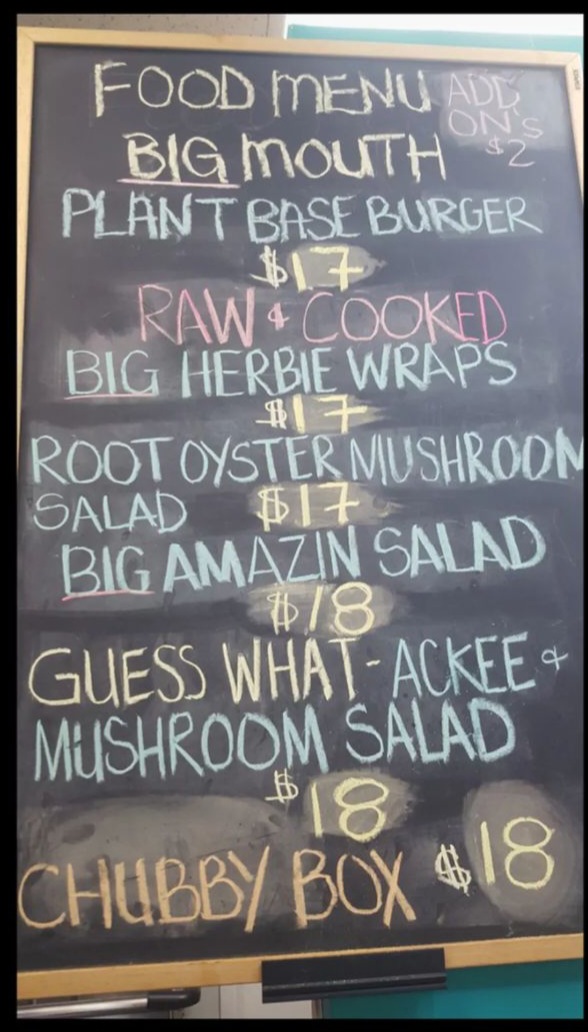 FOOD MENU
ADD
ON'S
$2
BIG MOUTH
PLANT BASE BURGER
$17
RAW & COOKED
BIG HERBIE WRAPS
$17
ROOT OYSTER MUSHROOM
SALAD $17
BIG AMAZIN SALAD
$18
GUESS WHAT- ACKEE &
MUSHROOM SALAD
$18
CHUBBY BOX $18